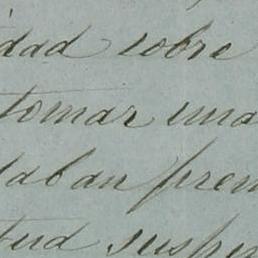 idad sobre
tomar una
laban pren
tud suspen